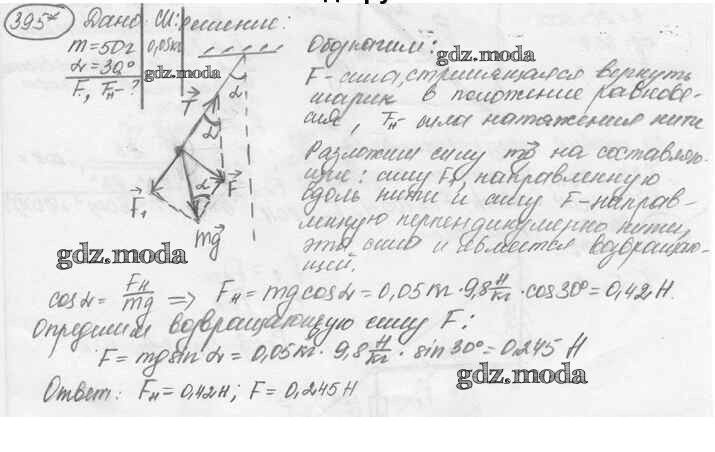 395* Дано: СИ: Решение:
m = 50г 0,05кг
α = 30°
F, Fн - ?
Обозначим:
gdz.moda
F - сила, стремящаяся вернуть
шарик в положение равнове-
сия, Fн - сила натяжения нити
Разложим силу mg на составляю-
щие: силу F₁, направленную
вдоль нити и силу F - направ-
ленную перпендикулярно нити,
эта сила и является возвращаю-
щей.
gdz.moda
T α
α
F₁ α F
mg
gdz.moda
cos α = Fн/mg => Fн = mg cos α = 0,05 кг · 9,8 Н/кг · cos 30° = 0,42 Н.
Определим возвращающую силу F:
F = mg sin α = 0,05 кг · 9,8 Н/кг · sin 30° = 0,245 Н
gdz.moda
Ответ: Fн = 0,42 Н; F = 0,245 Н